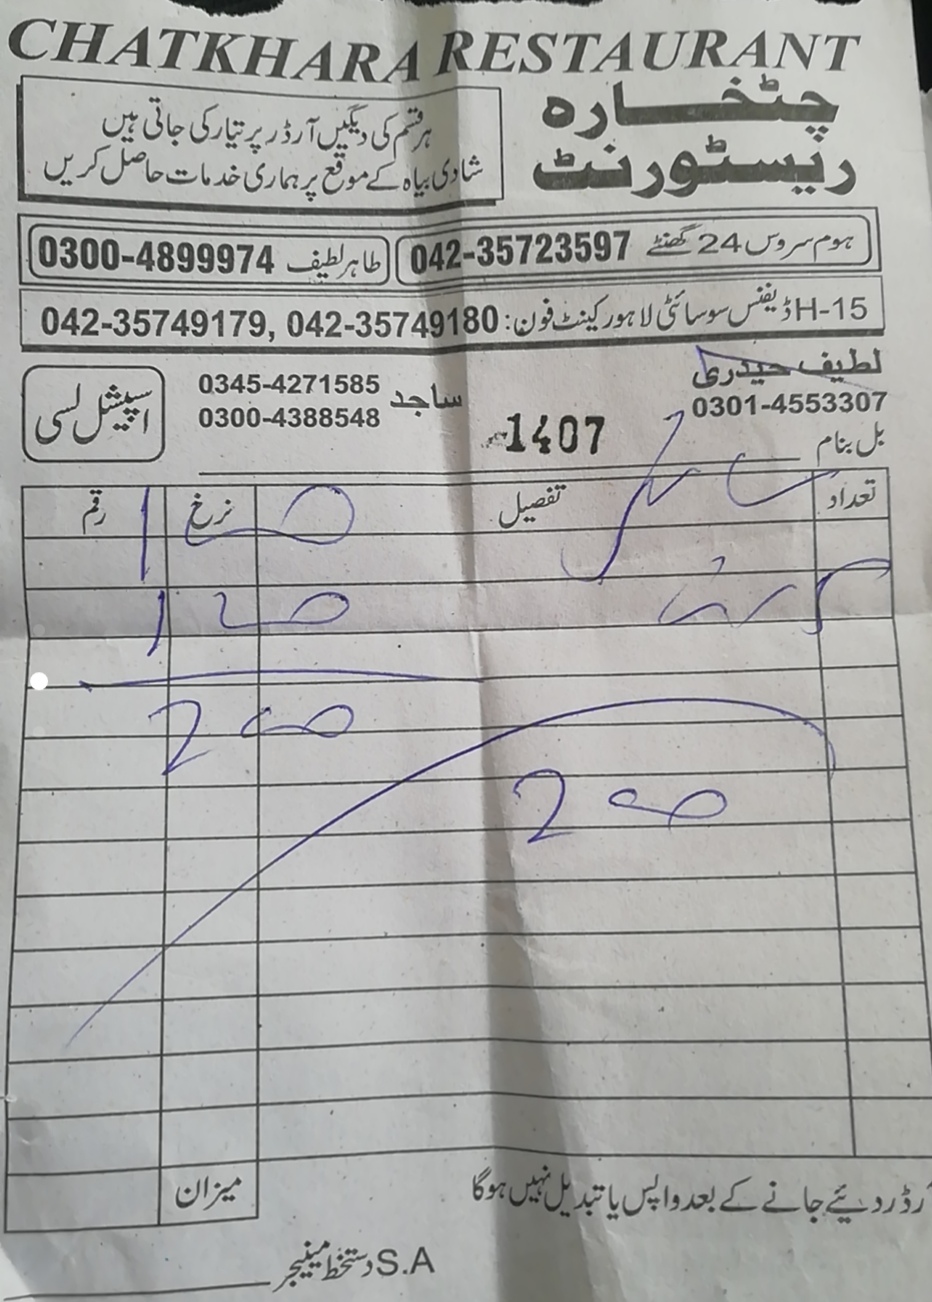 CHATKHARA RESTAURANT
چٹخارہ
ریسٹورنٹ
ہر قسم کی دیگیں آرڈر پر تیار کی جاتی ہیں
شادی بیاہ کے موقع پر ہماری خدمات حاصل کریں
ہوم سروس 24 گھنٹے 042-35723597
طاہر لطیف 0300-4899974
H-15 ڈیفنس سوسائٹی لاہور کینٹ فون: 042-35749180 ,042-35749179
لطیف حیدری
0301-4553307
ساجد 0345-4271585
0300-4388548
اسپیشل لسی
1407
بل بنام
تعداد تفصیل نرخ رقم
200
200
میزان
رڈر دیئے جانے کے بعد واپس یا تبدیل نہیں ہوگا
S.A دستخط مینیجر